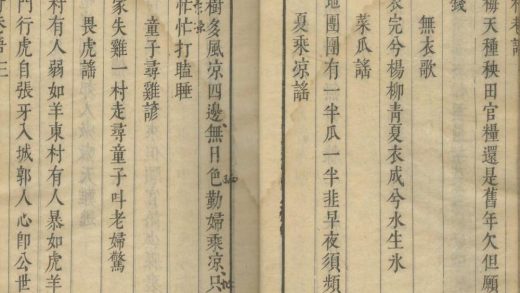 梅天種秧田官糧還是舊年欠但願
錢
無衣歌
衣完兮楊柳青夏衣成兮水生氷
菜瓜謠
地團團有一半瓜一半韭早夜須頻
夏乘凉謠
樹多風凉四邊無日色勤婦乘凉只
忙忙打瞌睡
童子尋雞諺
家失雞一村走尋童子呌老婦驚
畏虎謠
村有人弱如羊東村有人暴如虎羊
門行虎自張牙入城郭人心卽公世